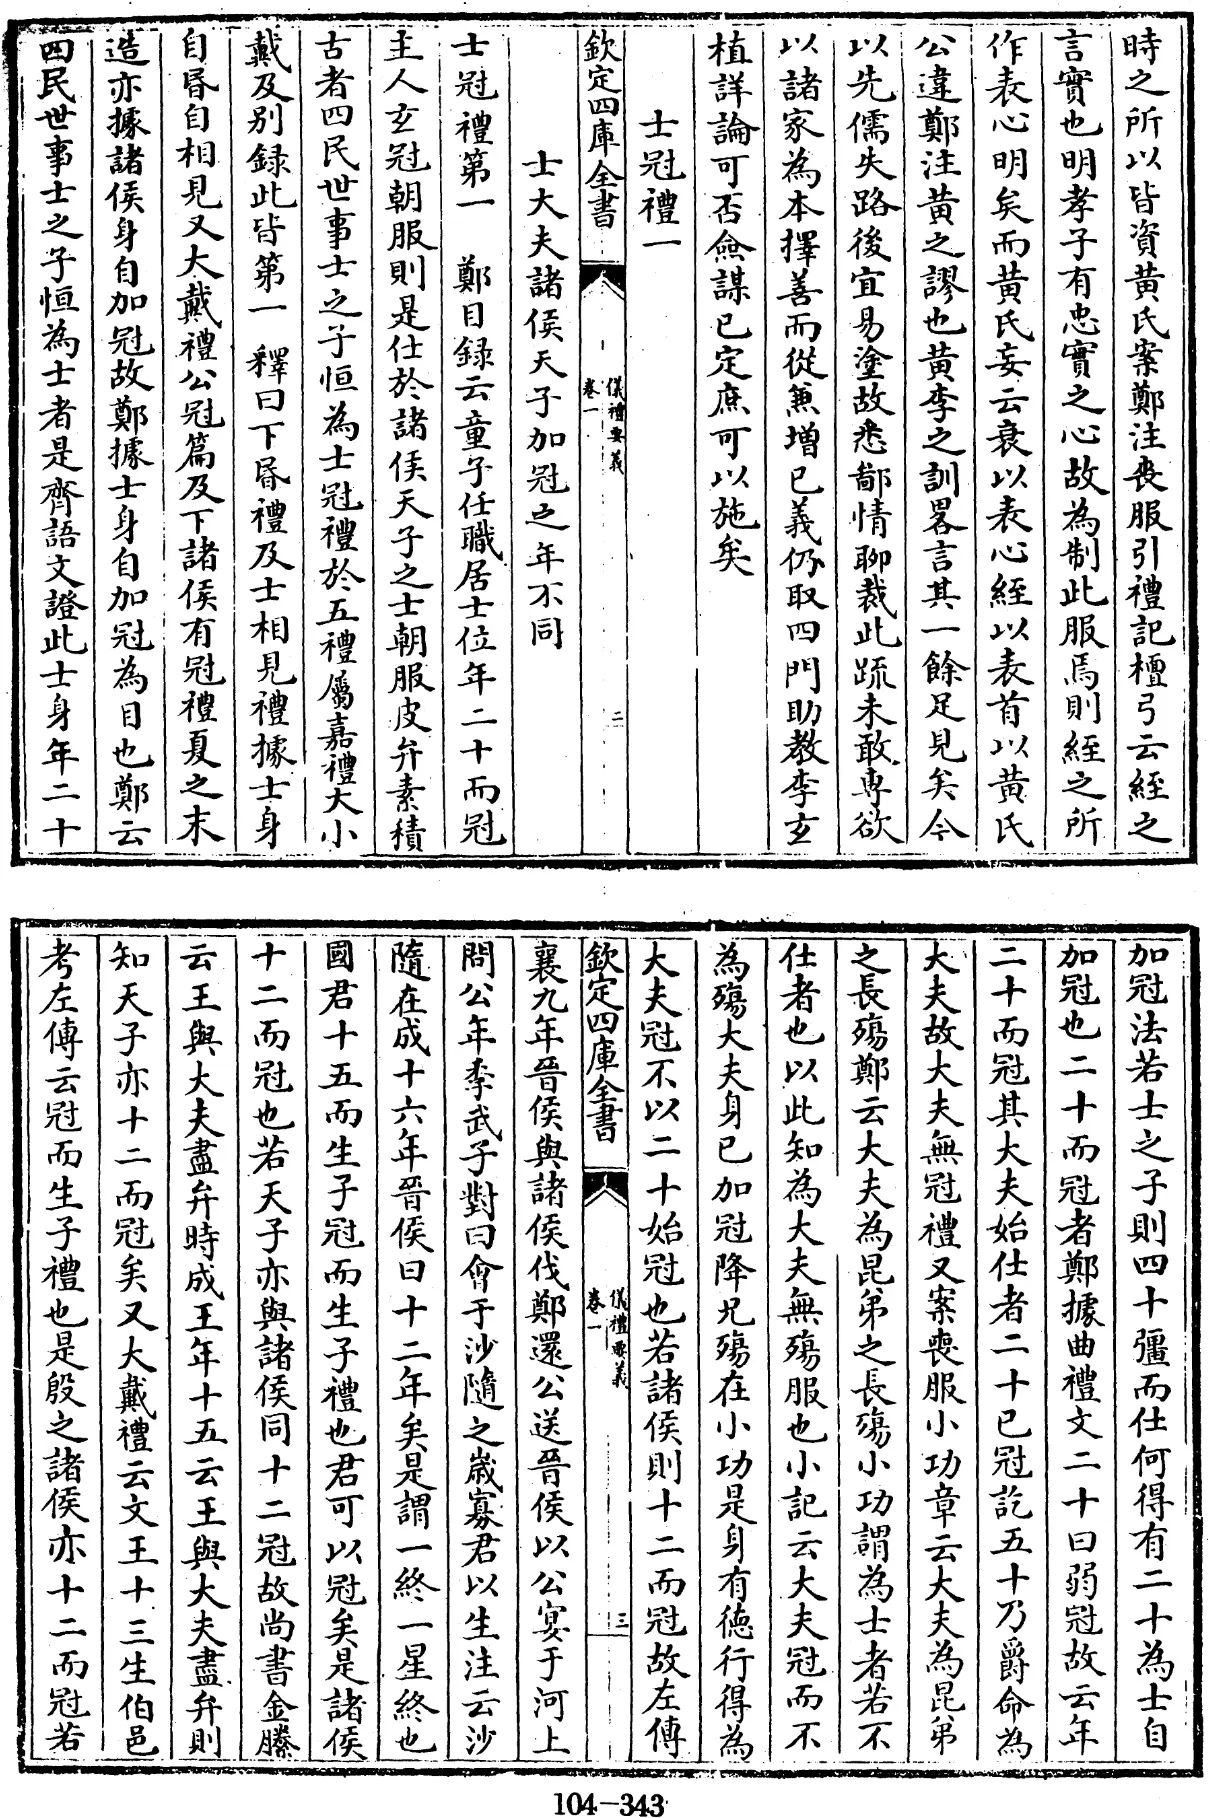 時之所以皆資黄氏案鄭注喪服引禮記檀弓云絰之
言實也明孝子有忠實之心故為制此服焉則絰之所
作表心明矣而黄氏妄云衰以表心絰以表首以黄氏
公違鄭注黄之謬也黄李之訓畧言其一餘足見矣今
以先儒失路後宜易塗故悉鄙情聊裁此疏未敢専欲
以諸家為本擇善而從兼増已義仍取四門助教李玄
植詳論可否僉謀已定庶可以施矣
士冠禮一
欽定四庫全書
儀禮要義
卷一
二
士大夫諸侯天子加冠之年不同
士冠禮第一 鄭目録云童子任職居士位年二十而冠
主人玄冠朝服則是仕於諸侯天子之士朝服皮弁素積
古者四民世事士之子恒為士冠禮於五禮屬嘉禮大小
戴及别録此皆第一 釋曰下昏禮及士相見禮據士身
自昏自相見又大戴禮公冠篇及下諸侯有冠禮夏之末
造亦據諸侯身自加冠故鄭據士身自加冠為目也鄭云
四民世事士之子恒為士者是齊語文證此士身年二十
加冠法若士之子則四十彊而仕何得有二十為士自
加冠也二十而冠者鄭據曲禮文二十曰弱冠故云年
二十而冠其大夫始仕者二十已冠訖五十乃爵命為
大夫故大夫無冠禮又案喪服小功章云大夫為昆弟
之長殤鄭云大夫為昆弟之長殤小功謂為士者若不
仕者也以此知為大夫無殤服也小記云大夫冠而不
為殤大夫身已加冠降兄殤在小功是身有徳行得為
大夫冠不以二十始冠也若諸侯則十二而冠故左傳
欽定四庫全書
儀禮要義
卷一
三
襄九年晉侯與諸侯伐鄭還公送晉侯以公宴于河上
問公年季武子對曰會于沙隨之歳寡君以生注云沙
隨在成十六年晉侯曰十二年矣是謂一終一星終也
國君十五而生子冠而生子禮也君可以冠矣是諸侯
十二而冠也若天子亦與諸侯同十二冠故尚書金縢
云王與大夫盡弁時成王年十五云王與大夫盡弁則
知天子亦十二而冠矣又大戴禮云文王十三生伯邑
考左傳云冠而生子禮也是殷之諸侯亦十二而冠若
104-343